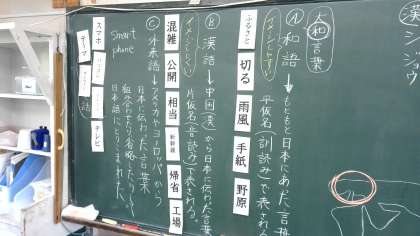 漢
ショウ
大和言葉
Ⓐ和語→もともと日本にあった言葉
平仮名(訓読み)で表される。
ふるさと
切る
雨風
手紙
野原
Ⓑ漢語→中国(漢)から日本に伝わった言葉
片仮名(音読み)で表される。
イメージしにくい
混雑
公開
相当
新幹線
帰省
工場
Ⓒ外来語
アメリカやヨーロッパから
日本に伝わった言葉
組み合わせたり省略したりして
日本語にとりこまれた。
Smart
phone
スマホ
テレビ
テーマ